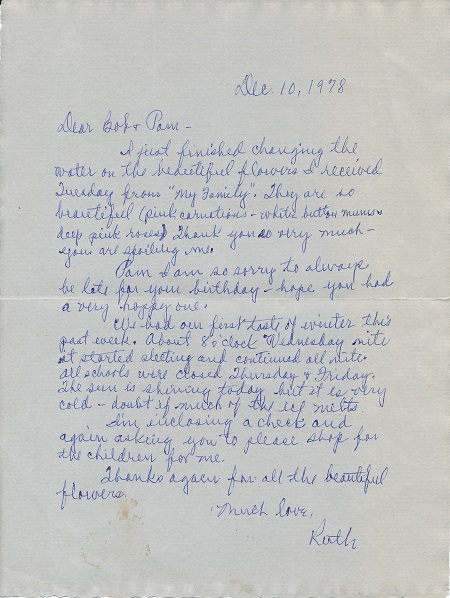 Dec. 10, 1978
Dear Bob & Pam -
I just finished changing the
water on the beautiful flowers I received
Tuesday from "My Family". They are so
beautiful (pink carnations - white button mums &
deep pink roses) Thank you so very much -
you are spoiling me.
Pam I am so sorry to always
be late for your birthday - hope you had
a very happy one.
We had our first taste of winter this
past week. About 8 o'clock Wednesday nite
it started sleeting and continued all nite.
All schools were closed Thursday & Friday.
The sun is shining today but it is very
cold - doubt if much of the ice melts.
I'm enclosing a check and
again asking you to please shop for
the children for me.
Thanks again for all the beautiful
flowers.
Much love,
Ruth